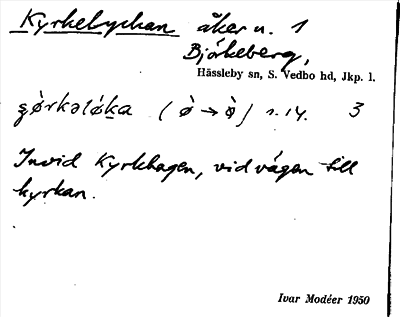 Kyrkelyckan åker n. 1
Björkeberg,
Hässleby sn, S. Vedbo hd, Jkp. l.
3
Invid Kyrkhagen, vid vägen till
kyrkan.
Ivar Modéer 1950